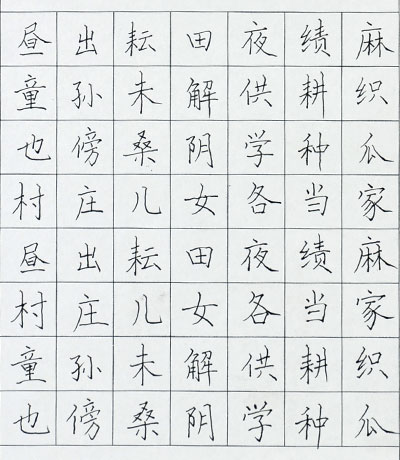 昼出耘田夜绩麻
童孙未解供耕织
也傍桑阴学种瓜
村庄儿女各当家
昼出耘田夜绩麻
村庄儿女各当家
童孙未解供耕织
也傍桑阴学种瓜